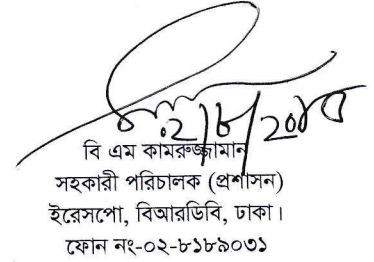 ০২/৮/২০১০
বি এম কামরুজ্জামান
সহকারী পরিচালক (প্রশাসন)
ইরেসপো, বিআরডিবি, ঢাকা।
ফোন নং-০২-৮১৮৯০৩১